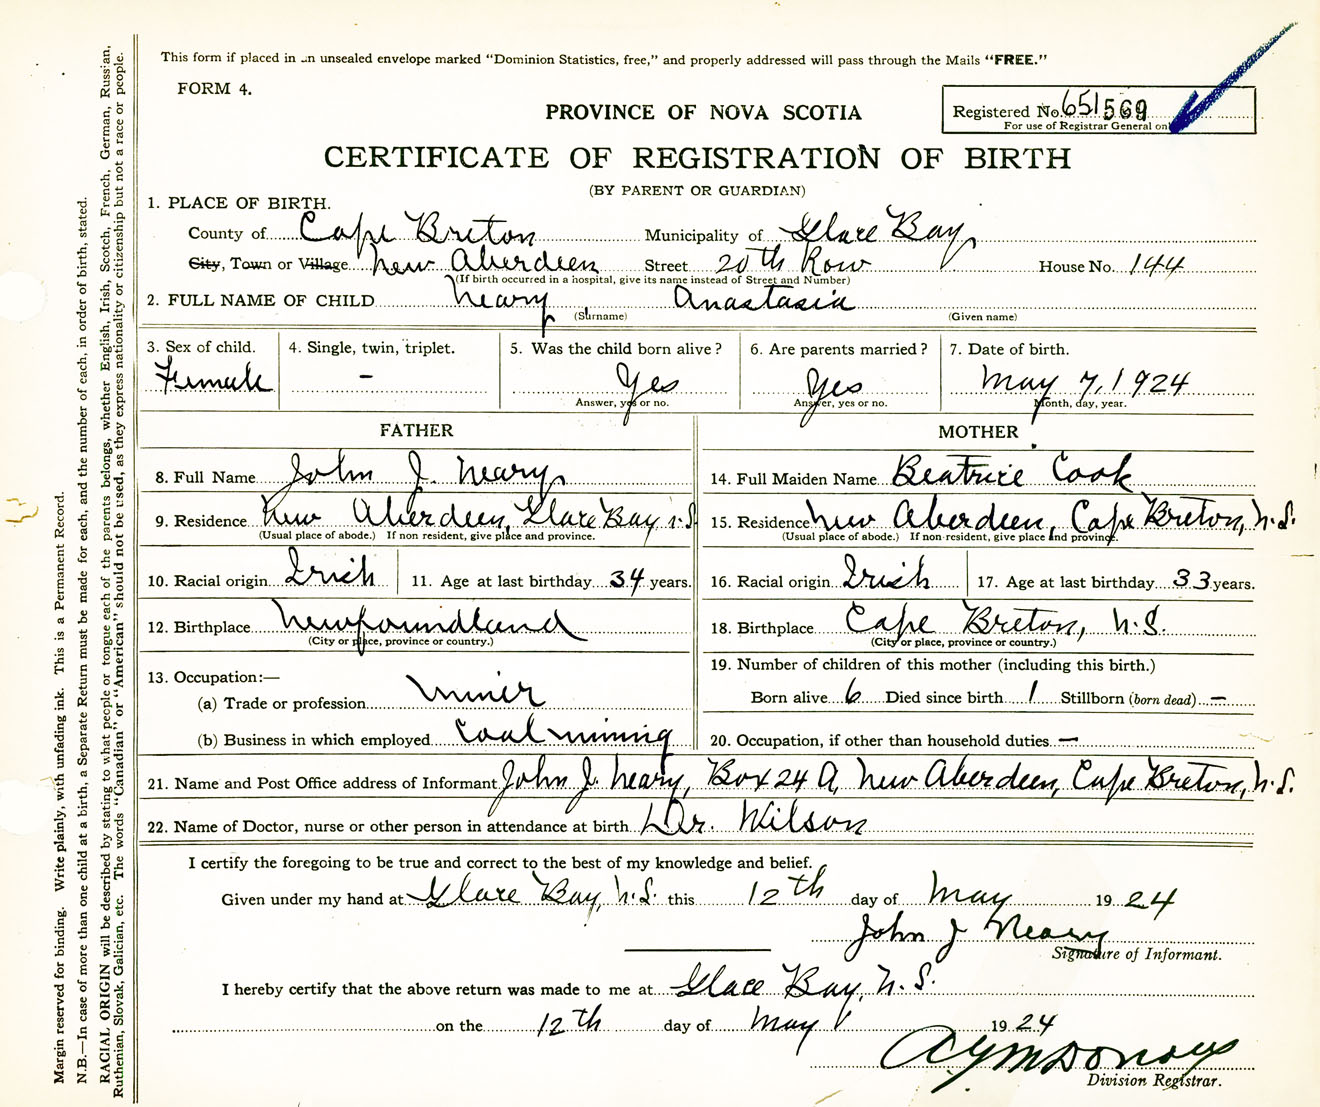 This form if placed in an unsealed envelope marked "Dominion Statistics, free," and properly addressed will pass through the Mails "FREE."
FORM 4.
PROVINCE OF NOVA SCOTIA
Registered No. 651569
For use of Registrar General only
CERTIFICATE OF REGISTRATION OF BIRTH
(BY PARENT OR GUARDIAN)
1. PLACE OF BIRTH.
County of Cape Breton Municipality of Glace Bay
City, Town or Village New Aberdeen Street 20th Row House No. 144
(If birth occurred in a hospital, give its name instead of Street and Number)
2. FULL NAME OF CHILD Neary Anastasia
(Surname) (Given name)
3. Sex of child. 4. Single, twin, triplet. 5. Was the child born alive? 6. Are parents married? 7. Date of birth.
Female - Yes Yes May 7, 1924
Answer, yes or no. Answer, yes or no. Month, day, year.
FATHER MOTHER
8. Full Name John J. Neary 14. Full Maiden Name Beatrice Cook
9. Residence New Aberdeen, Glace Bay N.S. 15. Residence New Aberdeen, Cape Breton, N.S.
(Usual place of abode.) If non resident, give place and province. (Usual place of abode.) If non-resident, give place and province.
10. Racial origin Irish 11. Age at last birthday 34 years. 16. Racial origin Irish 17. Age at last birthday 33 years.
12. Birthplace Newfoundland 18. Birthplace Cape Breton, N.S.
(City or place, province or country.) (City or place, province or country.)
13. Occupation:— 19. Number of children of this mother (including this birth.)
(a) Trade or profession Miner Born alive 6 Died since birth 1 Stillborn (born dead) —
(b) Business in which employed Coal mining 20. Occupation, if other than household duties. —
21. Name and Post Office address of Informant John J. Neary, Box 24 A, New Aberdeen, Cape Breton, N.S.
22. Name of Doctor, nurse or other person in attendance at birth Dr. Wilson
I certify the foregoing to be true and correct to the best of my knowledge and belief.
Given under my hand at Glace Bay, N.S. this 12th day of May 1924
John J Neary
Signature of Informant.
I hereby certify that the above return was made to me at Glace Bay, N.S.
on the 12th day of May 1924
Division Registrar.
Margin reserved for binding. Write plainly, with unfading ink. This is a Permanent Record.
N.B.—In case of more than one child at a birth, a Separate Return must be made for each, and the number of each, in order of birth, stated.
RACIAL ORIGIN will be described by stating to what people or tongue each of the parents belongs, whether English, Irish, Scotch, French, German, Russian,
Ruthenian, Slovak, Galician, etc. The words "Canadian" or "American" should not be used, as they express nationality or citizenship but not a race or people.